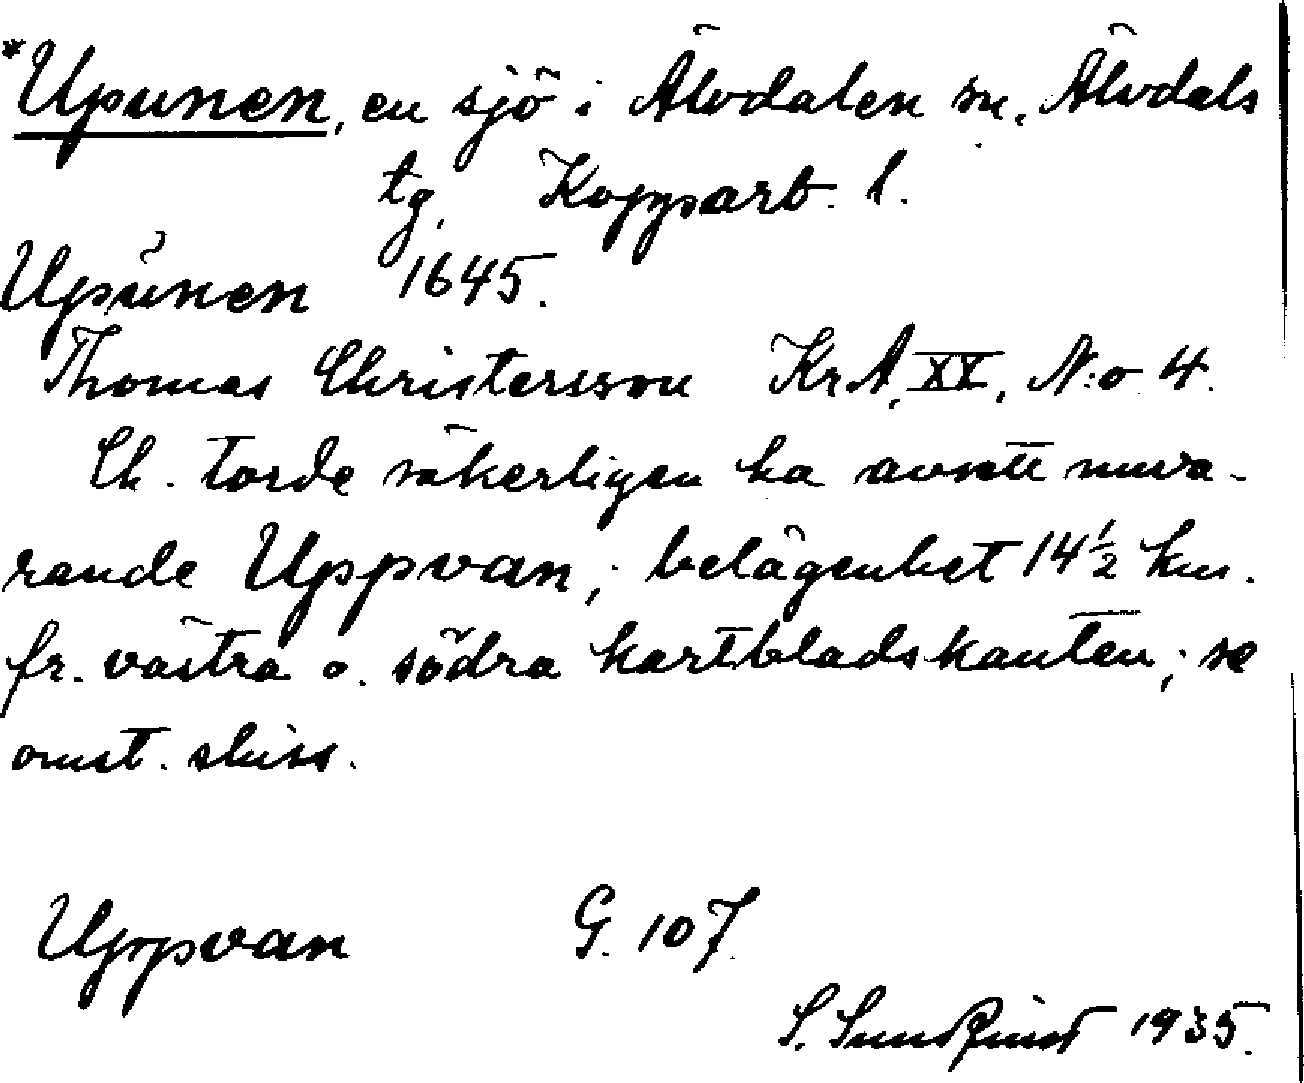 *Upunen, en sjö i Älvdalen sn, Älvdals
tg, Kopparb. l.
Upŭnen 1645.
Thomas Christersson KrA, XX, N:o 4.
Ch. torde säkerligen ha avsett nuva-
rande Uppvan, belägenhet 14½ km.
fr. västra o. södra kartbladskanten; se
omst. skiss.
Uppvan G. 107.
S. Sundquist 1935.